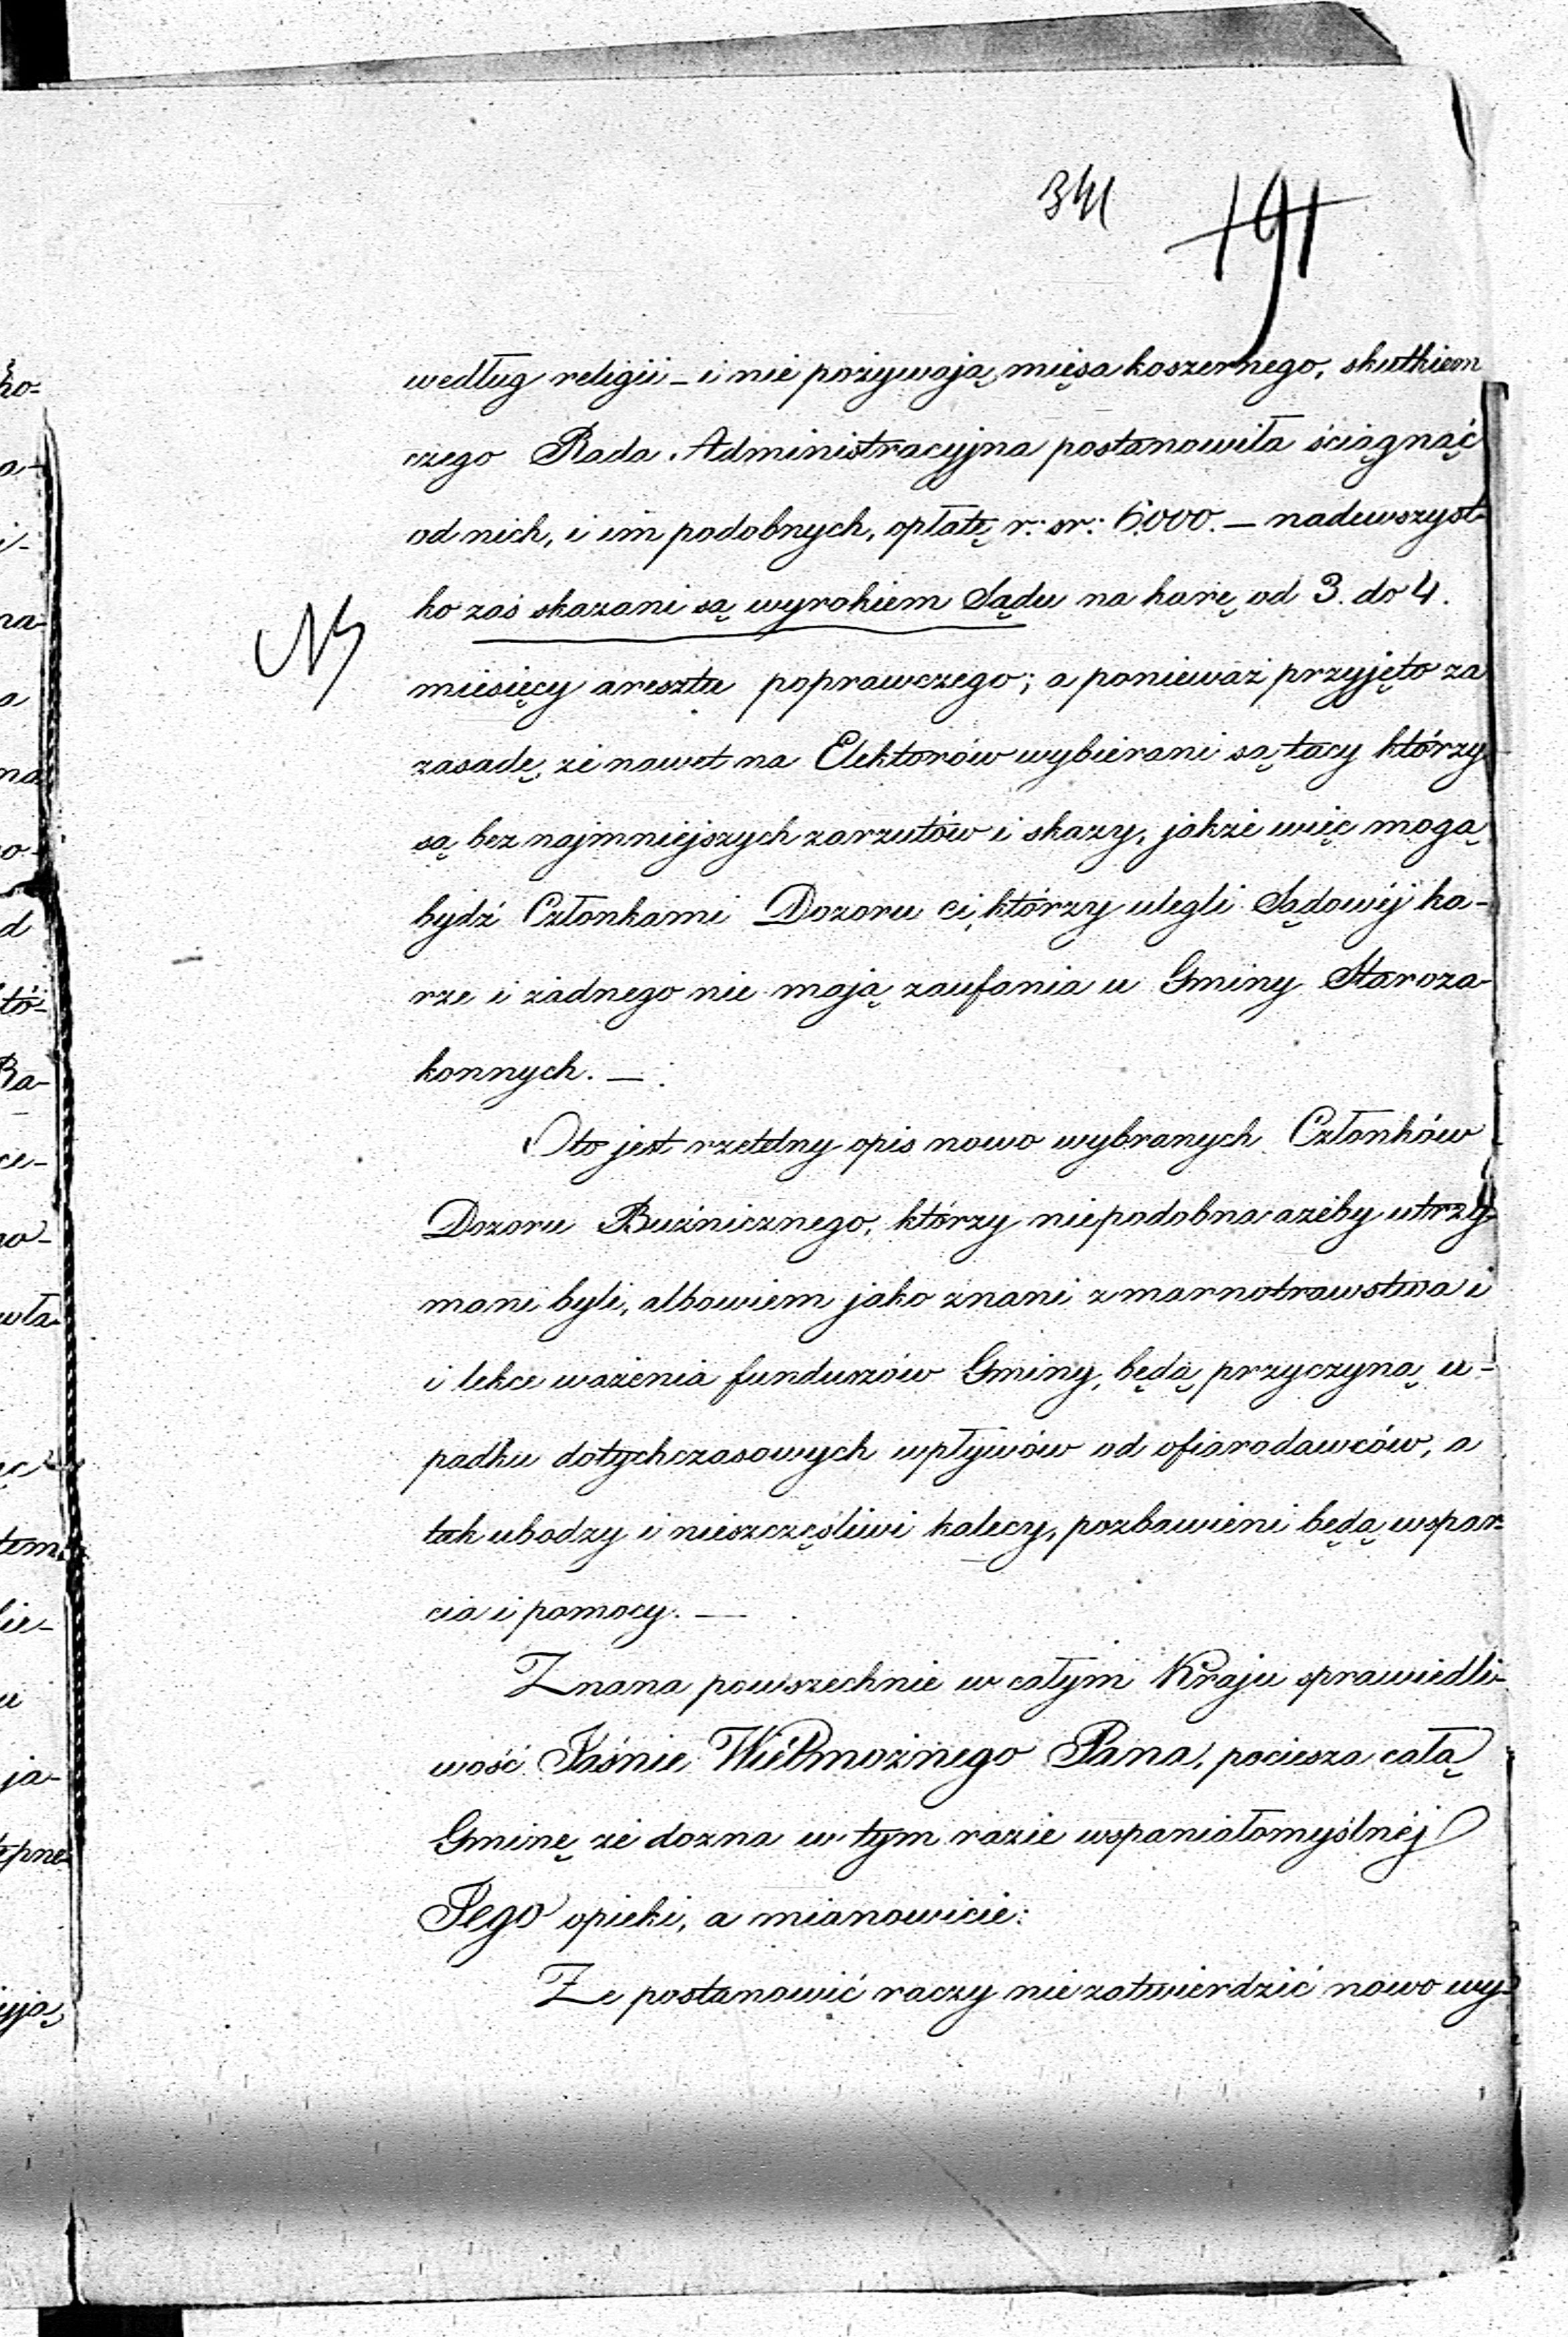 341
191
według religii – i nie pożywają mięsa koszernego, skutkiem
czego Rada Administracyjna postanowiła ściągnąć
od nich, i im podobnych, opłatę r: sr: 6000. — nadewszyst-
ko zaś skazani są wyrokiem Sądu na karę od 3. do 4.
NB
miesięcy aresztu poprawczego; a ponieważ przyjęto za
zasadę, że nawet na Elektorów wybierani są tacy którzy
są bez najmniejszych zarzutów i skazy, jakże więc mogą
bydź Członkami Dozoru ci, którzy ulegli Sądowéj ka-
rze i żadnego nie mają zaufania u Gminy Staroza-
konnych. —
Oto jest rzetelny opis nowo wybranych Członków
Dozoru Bużnicznego, którzy niepodobna ażeby utrzy-
mani byli, albowiem jako znani z marnotrawstwa i
i lekce ważenia funduszów Gminy, będą przyczyną u-
padku dotychczasowych wpływów od ofiarodawców, a
tak ubodzy i nieszczęśliwi kalecy, pozbawieni będą wspar-
cia i pomocy. —
Znana powszechnie w całym Kraju sprawiedli-
wość Jaśnie Wielmożnego Pana, pociesza całą
Gminę że dozna w tym razie wspaniałomyślnéj
Jego opieki, a mianowicie:
Że postanowić raczy nie zatwierdzić nowo wy-